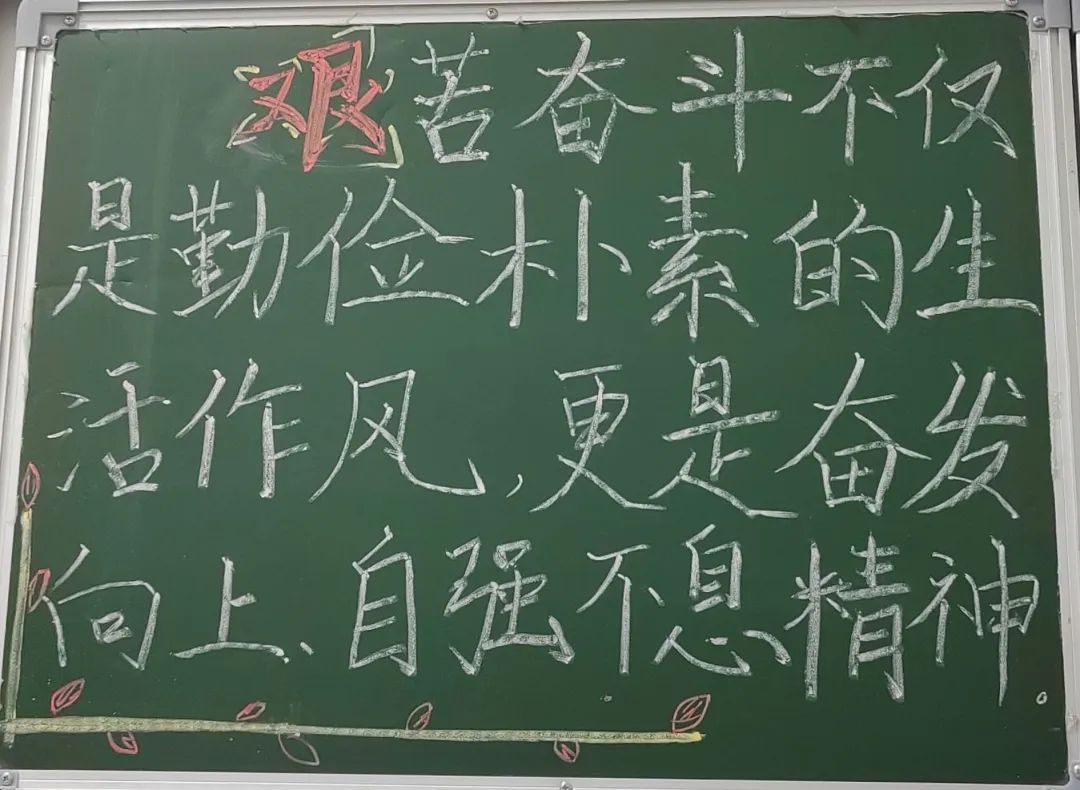 艰苦奋斗不仅
是勤俭朴素的生
活作风,更是奋发
向上、自强不息精神。